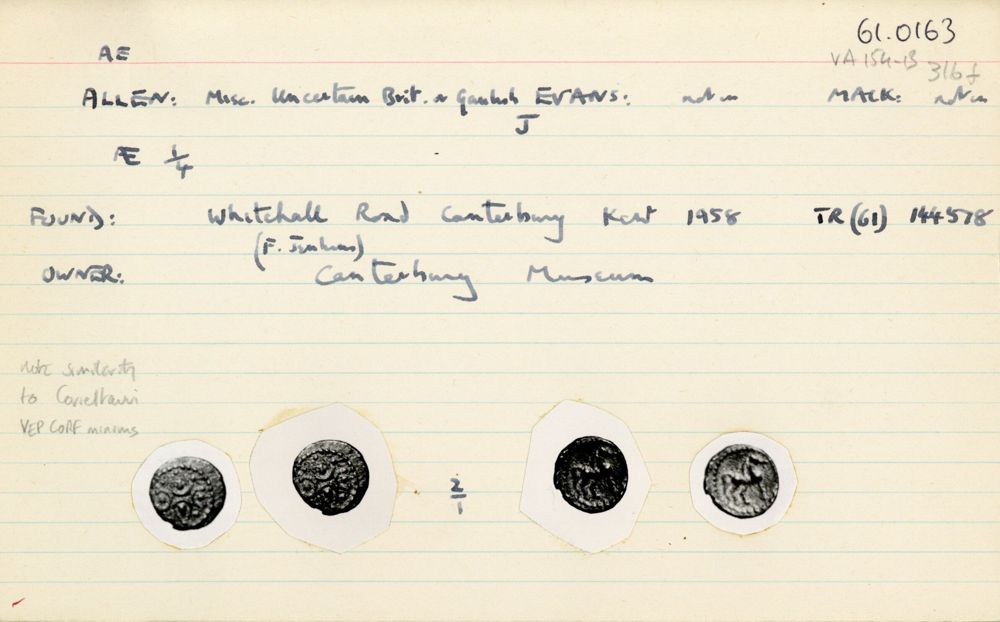 61.0163
AE
VA 154-13
316f
ALLEN: Misc. Uncertain Brit. or Gaulish EVANS: not in MACK: not in
J
Æ 1/4
FOUND: Whitehall Road Canterbury Kent 1958 TR (61) 144578
(F. Jenkins)
OWNER: Canterbury Museum
note similarity
to Corieltauvi
VEP CORF minims
2/1